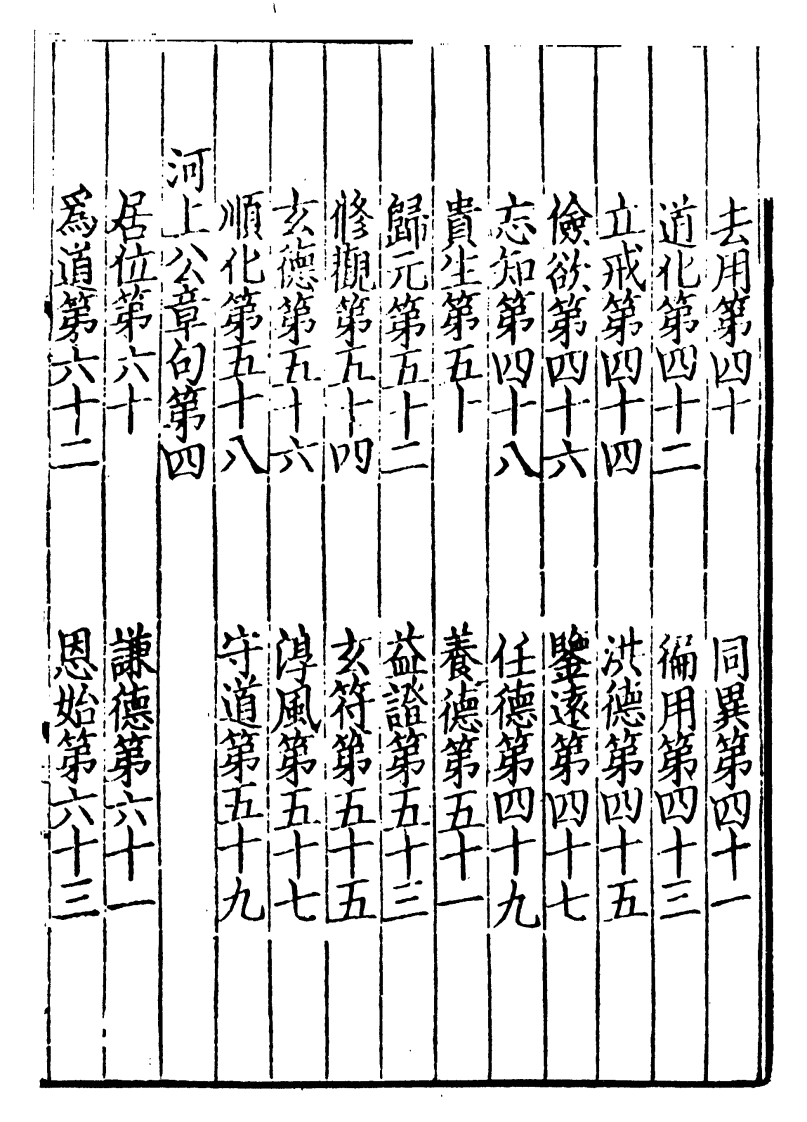 去用第四十　同異第四十一
道化第四十二　徧用第四十三
立戒第四十四　洪德第四十五
儉欲第四十六　鑒遠第四十七
忘知第四十八　任德第四十九
貴生第五十　養德第五十一
歸元第五十二　益證第五十三
修觀第五十四　玄符第五十五
玄德第五十六　淳風第五十七
順化第五十八　守道第五十九
河上公章句第四
居位第六十　謙德第六十一
爲道第六十二　恩始第六十三